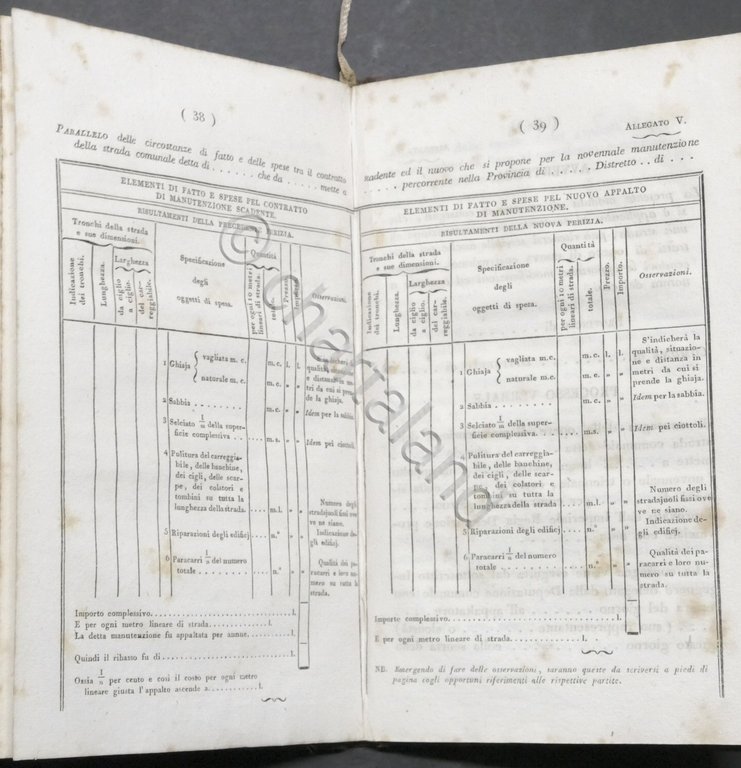 ( 38 )
PARALLELO delle circostanze di fatto e delle spese tra il contratto
della strada comunale detta di . . . . . . che da . . . . . mette a
ELEMENTI DI FATTO E SPESE PEL CONTRATTO
DI MANUTENZIONE SCADENTE.
RISULTAMENTI DELLA PRECEDENTE PERIZIA.
Tronchi della strada
e sue dimensioni.
Indicazione
dei tronchi.
Lunghezza.
Larghezza
da ciglio
a ciglio.
del car-
reggiabile.
Specificazione
degli
oggetti di spesa.
Quantità
per ogni 10 metri
lineari di strada.
totale.
Prezzo.
Importo.
Osservazioni.
1 Ghiaja { vagliata m. c. m. c. l. l.
naturale m. c. m. c. » »
S'indicherà la
qualità, situazio-
ne e distanza in
metri da cui si
prende la ghiaja.
2 Sabbia . . . . . . . . m. c. » » Idem per la sabbia.
3 Selciato 1/n della super-
ficie complessiva. . . . . . m. s. » » Idem pei ciottoli.
4 Politura del carreggia-
bile, delle banchine,
dei cigli, delle scar-
pe, dei colatori e
tombini su tutta la
lunghezza della strada. . . . m. l. » »
Numero degli
stradajuoli fissi ove
ve ne siano.
5 Riparazioni degli edificj n.° » »
Indicazione
degli edificj.
6 Paracarri 1/n del numero
totale . . . . . . . . n.° » »
Qualità dei pa-
racarri e loro nu-
mero su tutta la
strada.
Importo complessivo. . . . . . . . . . . . . . l.
E per ogni metro lineare di strada. . . . . . l.
La detta manutenzione fu appaltata per annue. . . . l.
Quindi il ribasso fu di . . . . . . . . . . . . l.
Ossia 1/n per cento e così il costo per ogni metro
lineare giusta l'appalto ascende a . . . . . . . . l.
( 39 )
ALLEGATO V.
scadente ed il nuovo che si propone per la novennale manutenzione
. . . . . percorrente nella Provincia di . . . . . Distretto . . di . . .
ELEMENTI DI FATTO E SPESE PEL NUOVO APPALTO
DI MANUTENZIONE.
RISULTAMENTI DELLA NUOVA PERIZIA.
Tronchi della strada
e sue dimensioni.
Indicazione
dei tronchi.
Lunghezza.
Larghezza
da ciglio
a ciglio.
del car-
reggiabile.
Specificazione
degli
oggetti di spesa.
Quantità
per ogni 10 metri
lineari di strada.
totale.
Prezzo.
Importo.
Osservazioni.
1 Ghiaja { vagliata m. c. m. c. l. l.
naturale m. c. m. c. » »
S'indicherà la
qualità, situazio-
ne e distanza in
metri da cui si
prende la ghiaja.
2 Sabbia . . . . . . . . m. c. » » Idem per la sabbia.
3 Selciato 1/n della super-
ficie complessiva. . . . . . m. s. » » Idem pei ciottoli.
4 Politura del carreggia-
bile, delle banchine,
dei cigli, delle scar-
pe, dei colatori e
tombini su tutta la
lunghezza della strada . . . m. l. » »
Numero degli
stradajuoli fissi ove
ve ne siano.
5 Riparazioni degli edificj n.° » »
Indicazione de-
gli edificj.
6 Paracarri 1/n del numero
totale . . . . . . . . n.° » »
Qualità dei pa-
racarri e loro nu-
mero su tutta la
strada.
Importo complessivo. . . . . . . . . . . . . l.
E per ogni metro lineare di strada. . . . . . . l.
NB. Emergendo di fare delle osservazioni, saranno queste da scriversi a piedi di
pagina cogli opportuni riferimenti alle rispettive partite.
© chartaland